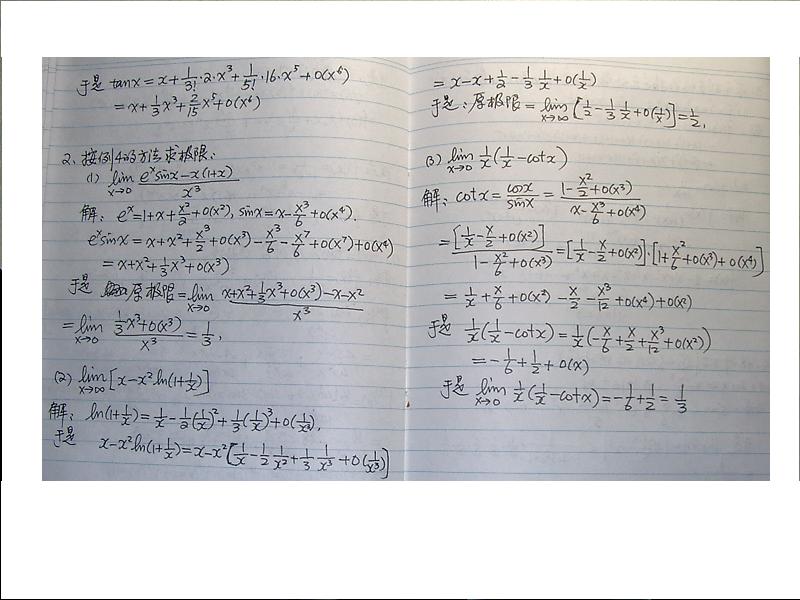 于是 tanx = x + 1/3!·2·x³ + 1/5!·16·x⁵ + o(x⁶)
= x + 1/3 x³ + 2/15 x⁵ + o(x⁶)
2、按例4的方法求极限:
(1) lim x→0 (eˣsinx − x(1+x))/x³
解: eˣ = 1 + x + x²/2 + o(x²), sinx = x − x³/6 + o(x⁴).
eˣsinx = x + x² + x³/2 + o(x³) − x³/6 − x⁷/6 + o(x⁷) + o(x⁴)
= x + x² + 1/3 x³ + o(x³)
于是 原极限 = lim x→0 (x + x² + 1/3 x³ + o(x³) − x − x²)/x³
= lim x→0 (1/3 x³ + o(x³))/x³ = 1/3,
(2) lim x→∞ [x − x² ln(1 + 1/x)]
解: ln(1 + 1/x) = 1/x − 1/2 (1/x)² + 1/3 (1/x)³ + o(1/x³),
于是 x − x² ln(1 + 1/x) = x − x² [1/x − 1/2 1/x² + 1/3 1/x³ + o(1/x³)]
= x − x + 1/2 − 1/3 1/x + o(1/x)
于是: 原极限 = lim x→∞ [1/2 − 1/3 1/x + o(1/x)] = 1/2,
(3) lim x→0 1/x (1/x − cotx)
解: cotx = cosx/sinx = (1 − x²/2 + o(x³))/(x − x³/6 + o(x⁴))
= [1/x − x/2 + o(x²)]/(1 − x²/6 + o(x³)) = [1/x − x/2 + o(x²)]·[1 + x²/6 + o(x³) + o(x⁴)]
= 1/x + x/6 + o(x²) − x/2 − x³/12 + o(x⁴) + o(x²)
于是 1/x (1/x − cotx) = 1/x (−x/6 + x/2 + x³/12 + o(x²))
= −1/6 + 1/2 + o(x)
于是 lim x→0 1/x (1/x − cotx) = −1/6 + 1/2 = 1/3